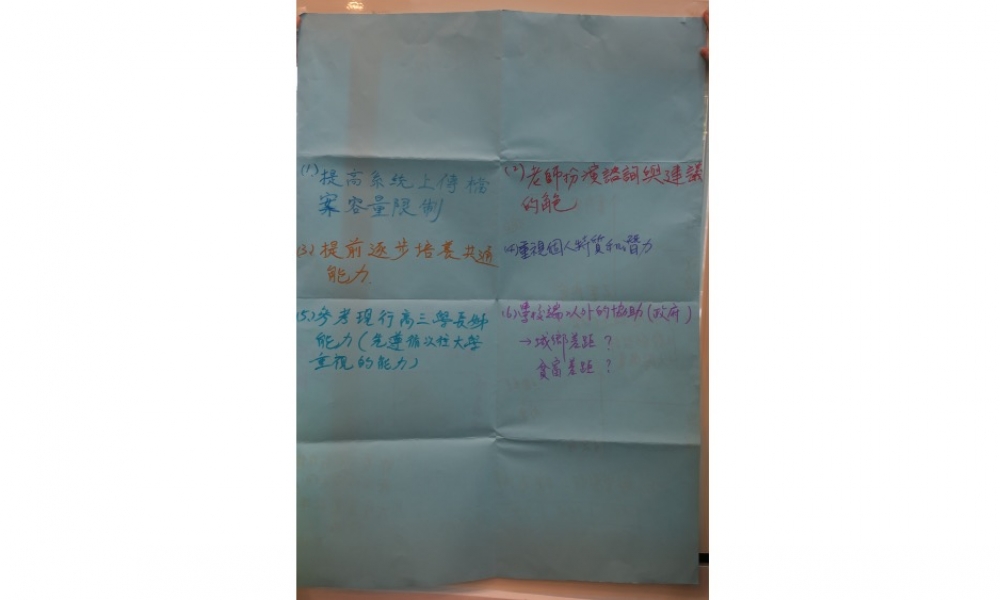 (1) 提高系統上傳檔
案容量限制
(2) 老師扮演諮詢與建議
的角色
(3) 提前逐步培養共通
能力
(4) 重視個人特質和潛力
(5) 參考現行高三學長姊
能力(先遵循以往大學
重視的能力)
(6) 學校端以外的協助(政府)
→城鄉差距?
貧富差距?